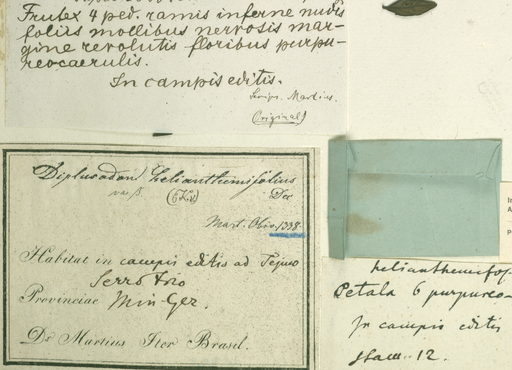 Frutex 4 ped. ramis inferne nudis
foliis mollibus nervosis mar-
gine revolutis floribus purpu-
reocaerulis.
In campis editis.
Scrips. Martius.
(Original)
Diplusodon helianthemifolius
var β. DC
Mart. Obs. 1338.
Habitat in campis editis ad Tejuco
Serro Frio
Provinciae Min. Ger.
Dr Martius Iter Brasil.
helianthemifol
Petala 6 purpureo-
In campis editis
Stam. 12.